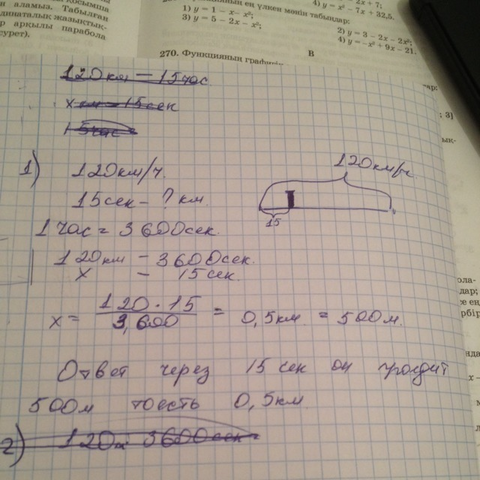 қосымша
н аламыз. Табылған
наталық жазықтық-
р арқылы парабола
сурет).
ң үлкен мәнін табыңдар:
1) y = 1 - x - x²;
3) y = 5 - 2x - x²;
4) y = x² - 7x + 32,5.
2) y = 3 - 2x - 2x²;
4) y = -x² + 9x - 21.
270. Функцияның графигін
В
120км — 15час
x км = 15сек
15час
1) 120км/ч.
15сек - ? км
120км/ч
15
1 час = 3600сек.
120км - 3600сек.
x - 15сек.
x = 120 · 15 / 3,600 = 0,5км = 500м.
Ответ через 15 сек он проедит
500м тоесть 0,5км
2) 120м 3600сек